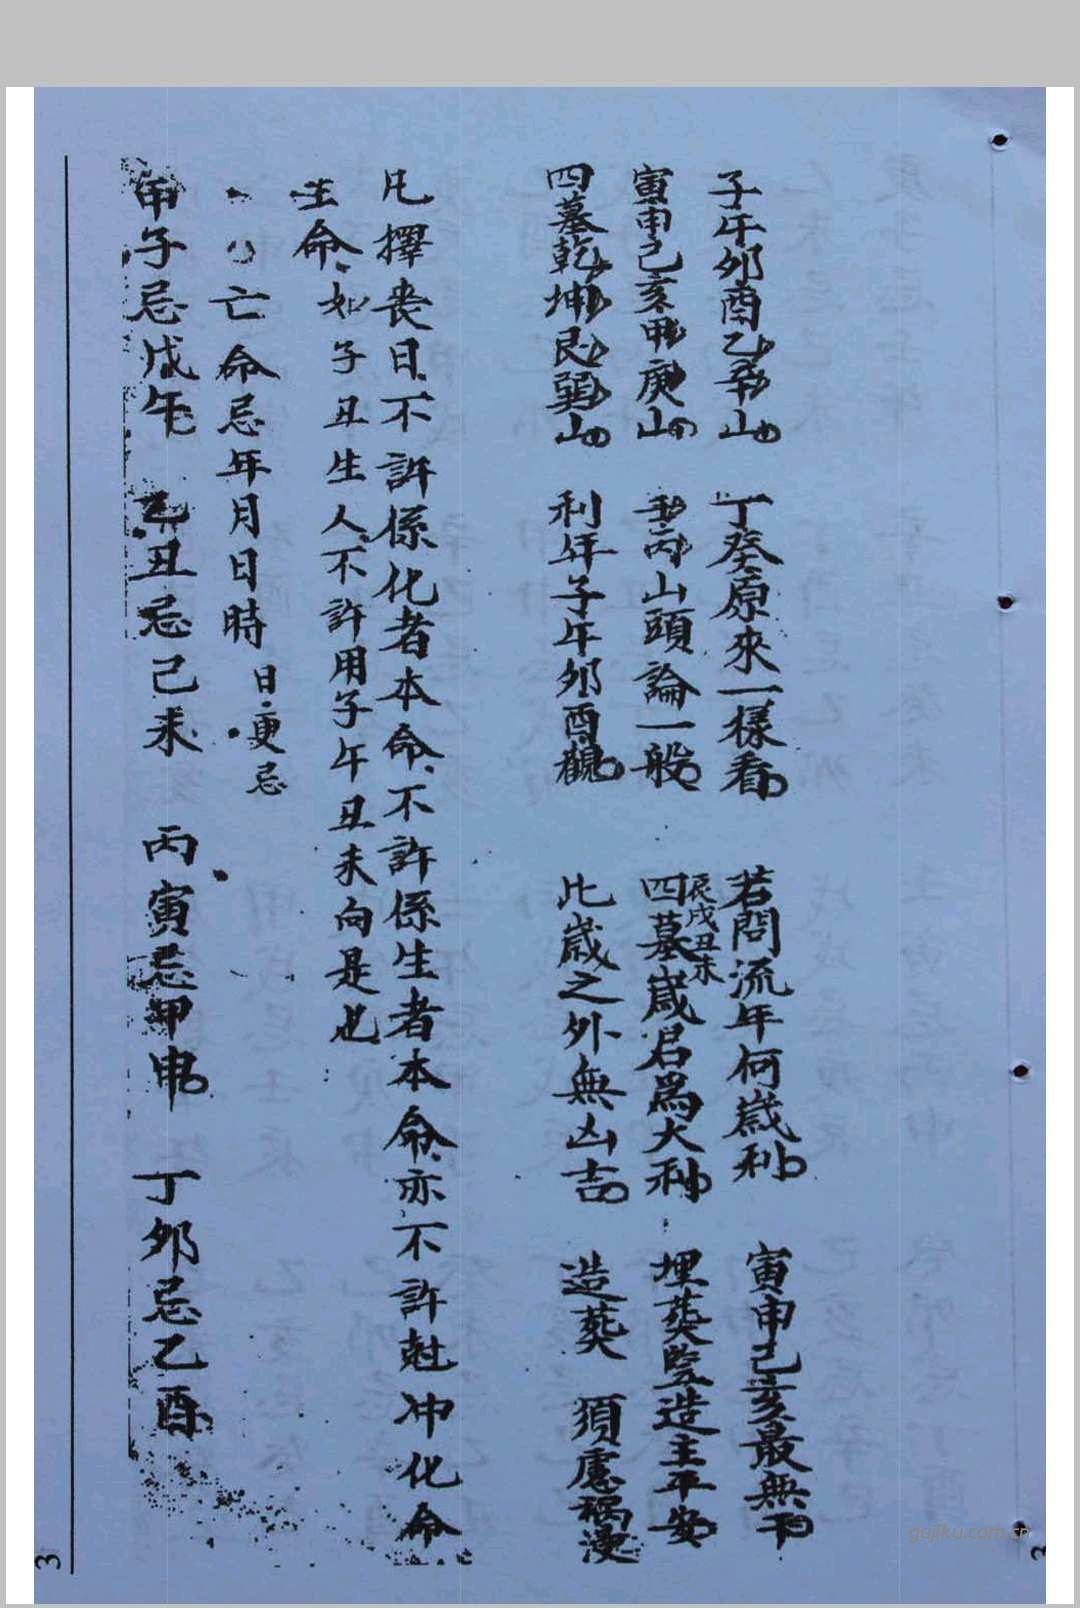 子午卯酉乙辛山 丁癸原來一樣看 若問流年何歲利 寅申巳亥最無干
寅申巳亥甲庚山 壬丙山頭論一般 四墓歲君爲大利 埋葬豎造主平安
辰戌丑未
四墓乾坤艮巽山 利年子午卯酉觀 比歲之外無凶吉 造葬須慮禍漫
凡擇丧日不許係化者本命不許係生者本命亦不許尅冲化命
生命如子丑生人不許用子午丑未向是也
亡命忌年月日時 日更忌
甲子忌戊午 乙丑忌己未 丙寅忌甲申 丁卯忌乙酉
3
3
gujiku.com.cn